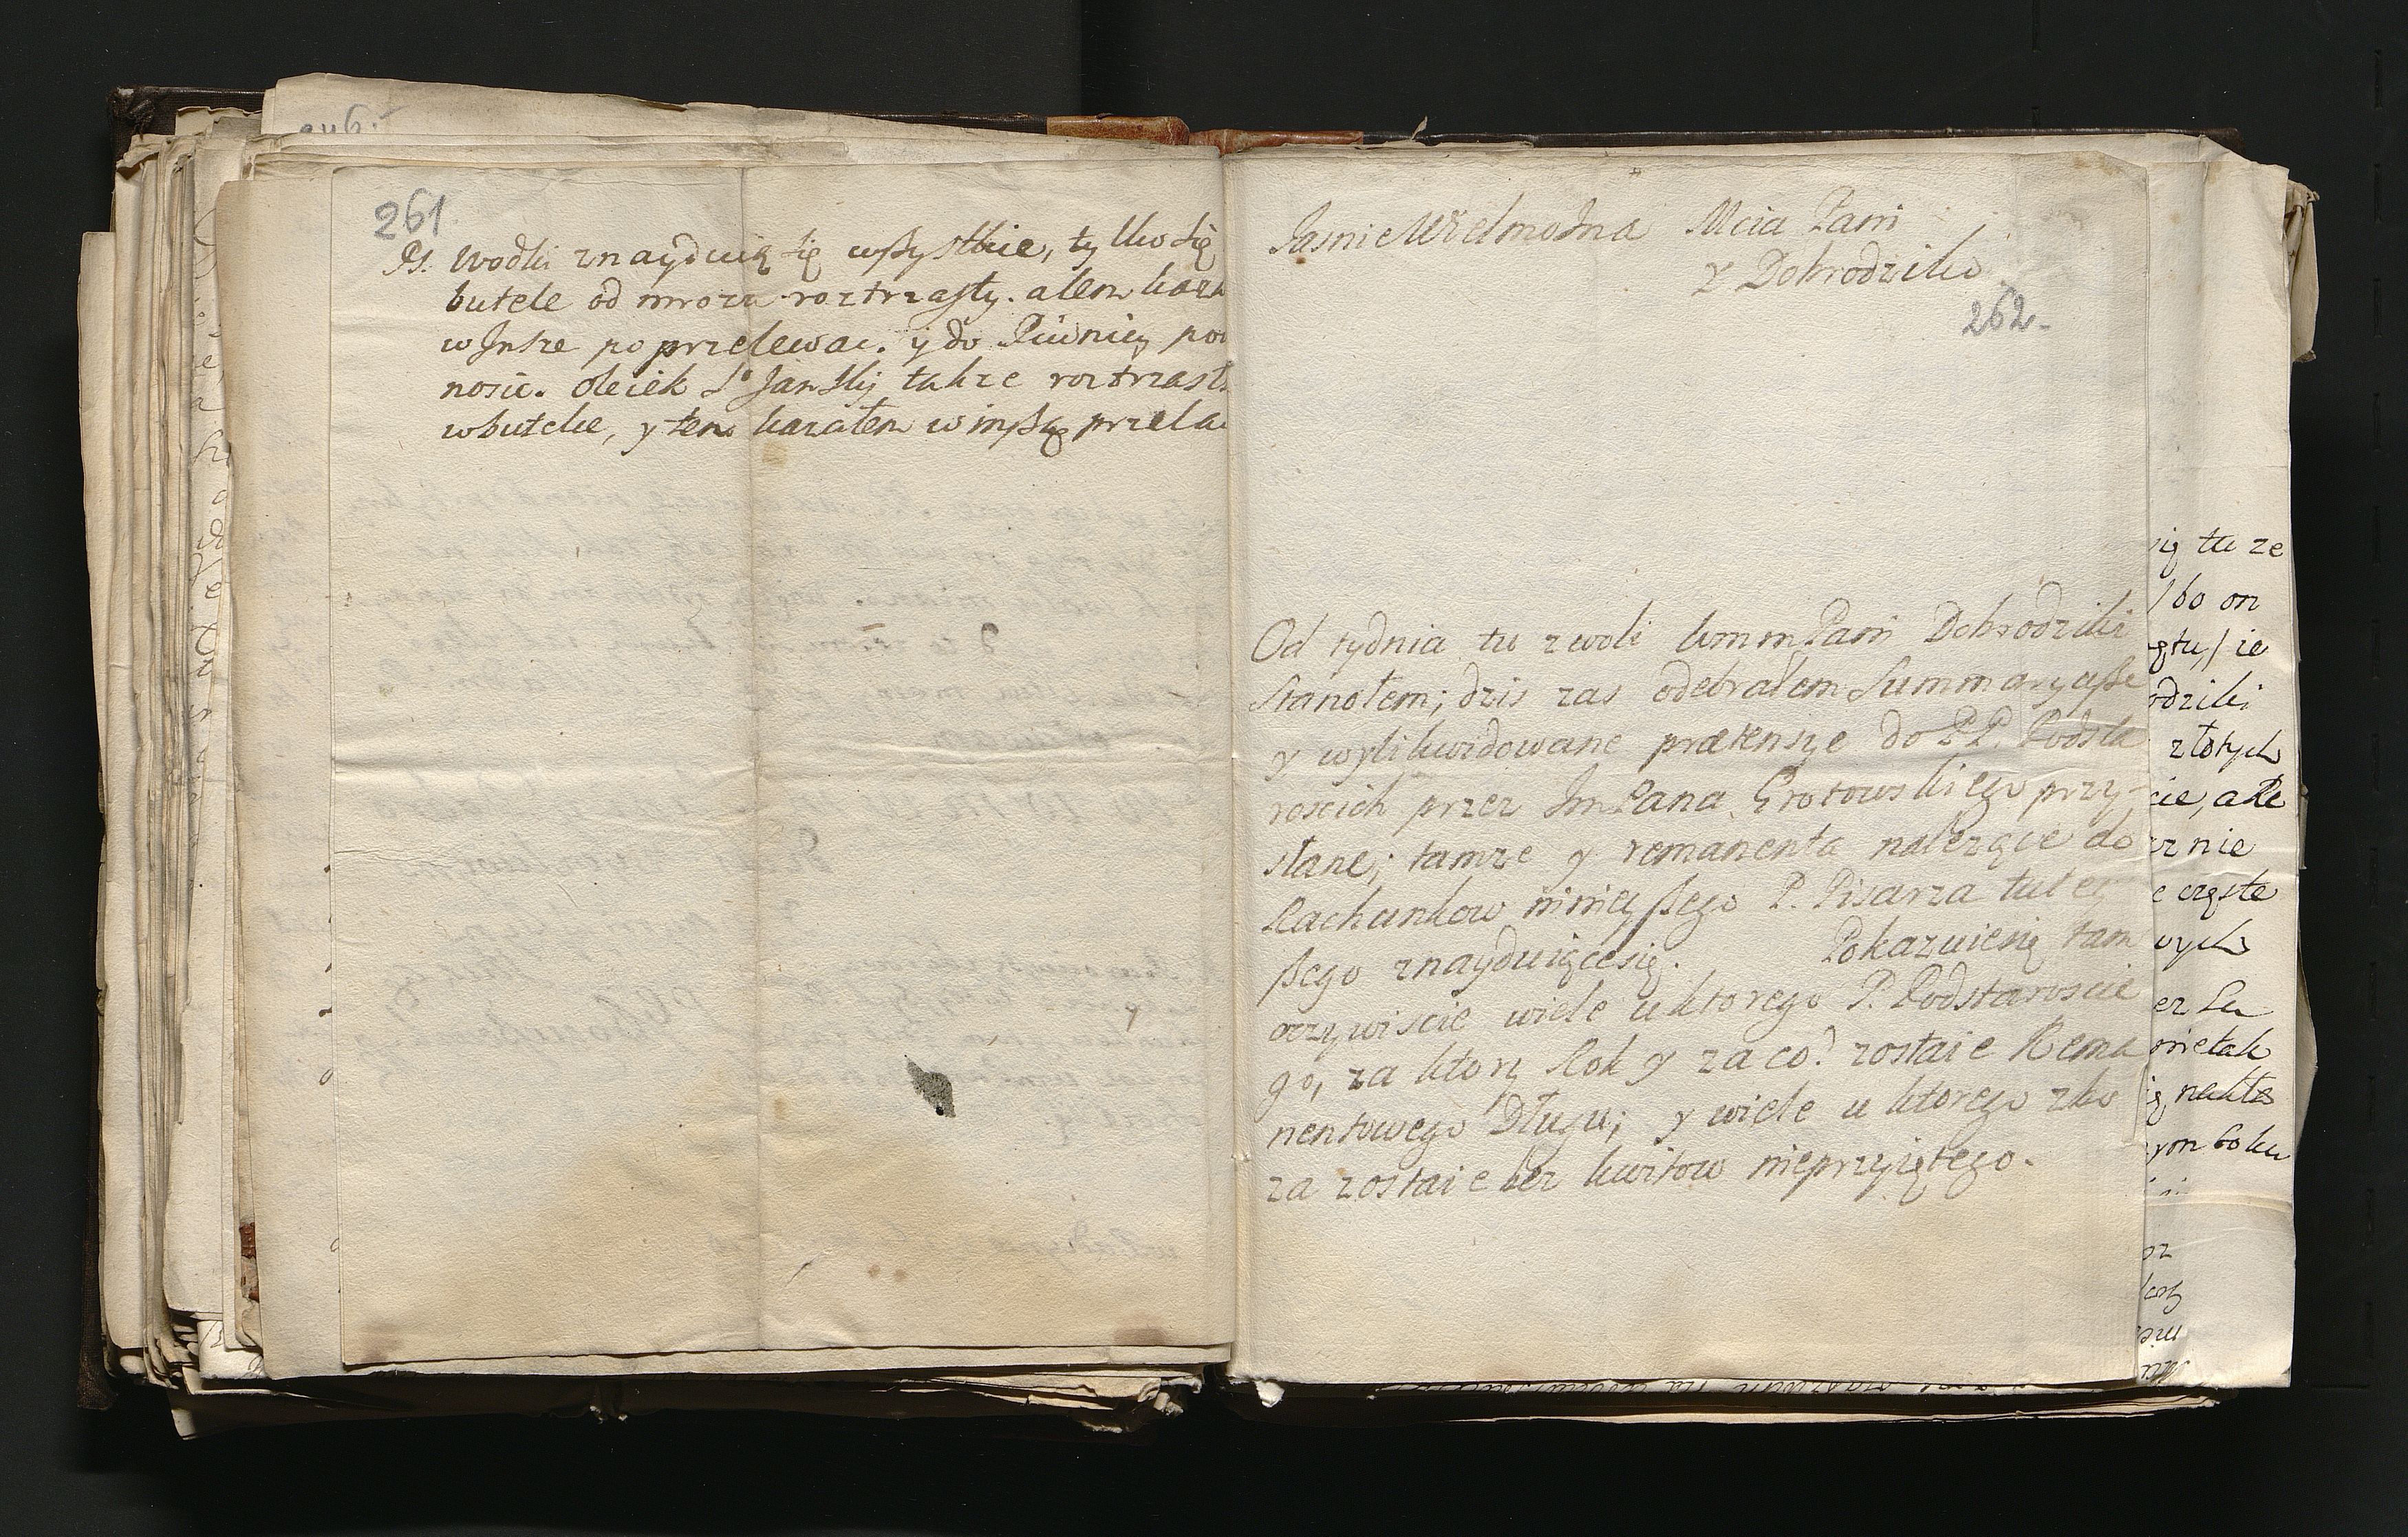 246.
261.
Ps. Wodki znayduią się wszystkie, tylko się
butele od mrozu roztrzasły. alem kaza
w Insze poprzelewac. y do Piwnicy po
nosic. Oleiek So Janski takze roztrzasł
w butelce, y ten kazałem w inszą przela
JasnieWielmozna Mcia Pani
y Dobrodziko
262.
Od tydnia tu z woli Wmm Pani Dobrodziki
stanołem; dzis zas odebrałem Summaryusze
y wylikwidowane prætensye do PP. Podsta
roscich przez ImPana Grotowskiego przy-
słane; tamze y remanenta nalezące do
Rachunkow ninieyszego P. Pisarza tutey
szego znayduiącesię. Pokazuiesię tam
oczywiscie wiele u ktorego P. Podstaroscie
go, za ktory Rok y za co? zostaie Rema
nentowego Długu; y wiele u ktorego zbo
za zostaie bez kwitow nieprzyiętego.
się tu ze
/bo on
tu,/ ie
odziki
złotych
cie, ale
nie
częste
wych
tak
boku